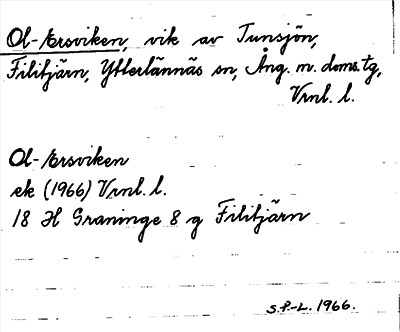 Ol-Ersviken, vik av Tunsjön,
Filitjärn, Ytterlännäs sn, Ång. m. doms.tg,
Vrnl. l.
Ol-Ersviken
ek (1966) Vrnl. l.
18 H Graninge 8 g Filitjärn
S.P.-L. 1966.